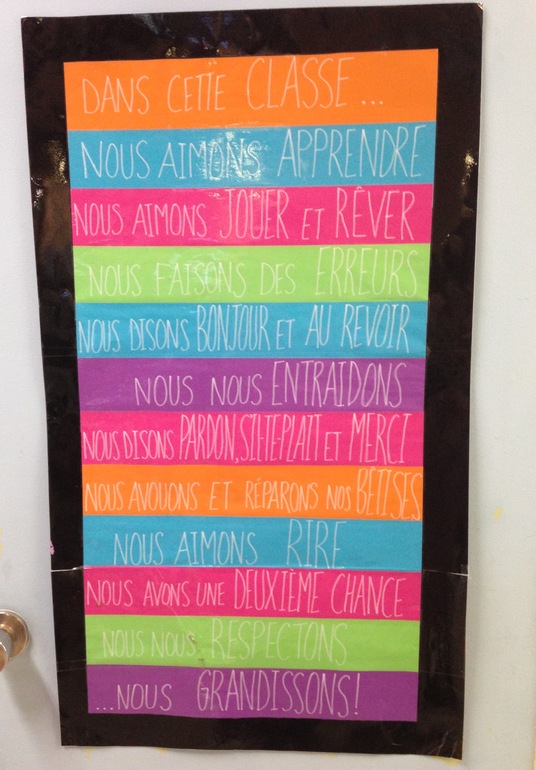 DANS CETTE CLASSE...
NOUS AIMONS APPRENDRE
NOUS AIMONS JOUER ET RÊVER
NOUS FAISONS DES ERREURS
NOUS DISONS BONJOUR ET AU REVOIR
NOUS NOUS ENTRAIDONS
NOUS DISONS PARDON, S'IL-TE-PLAIT ET MERCI
NOUS AVOUONS ET RÉPARONS NOS BÊTISES
NOUS AIMONS RIRE
NOUS AVONS UNE DEUXIÈME CHANCE
NOUS NOUS RESPECTONS
...NOUS GRANDISSONS!